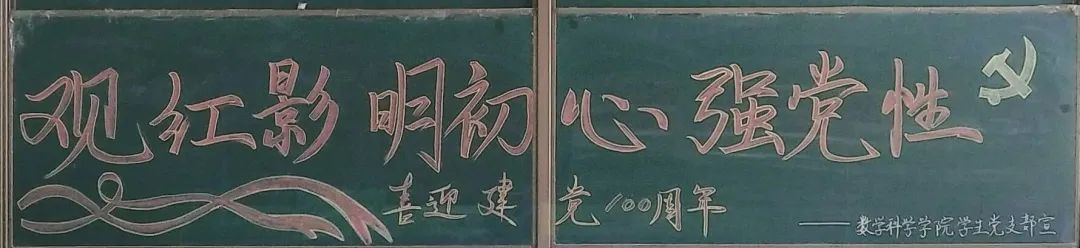 观红影 明初心 强党性
喜迎建党100周年
——数学科学学院学生党支部宣